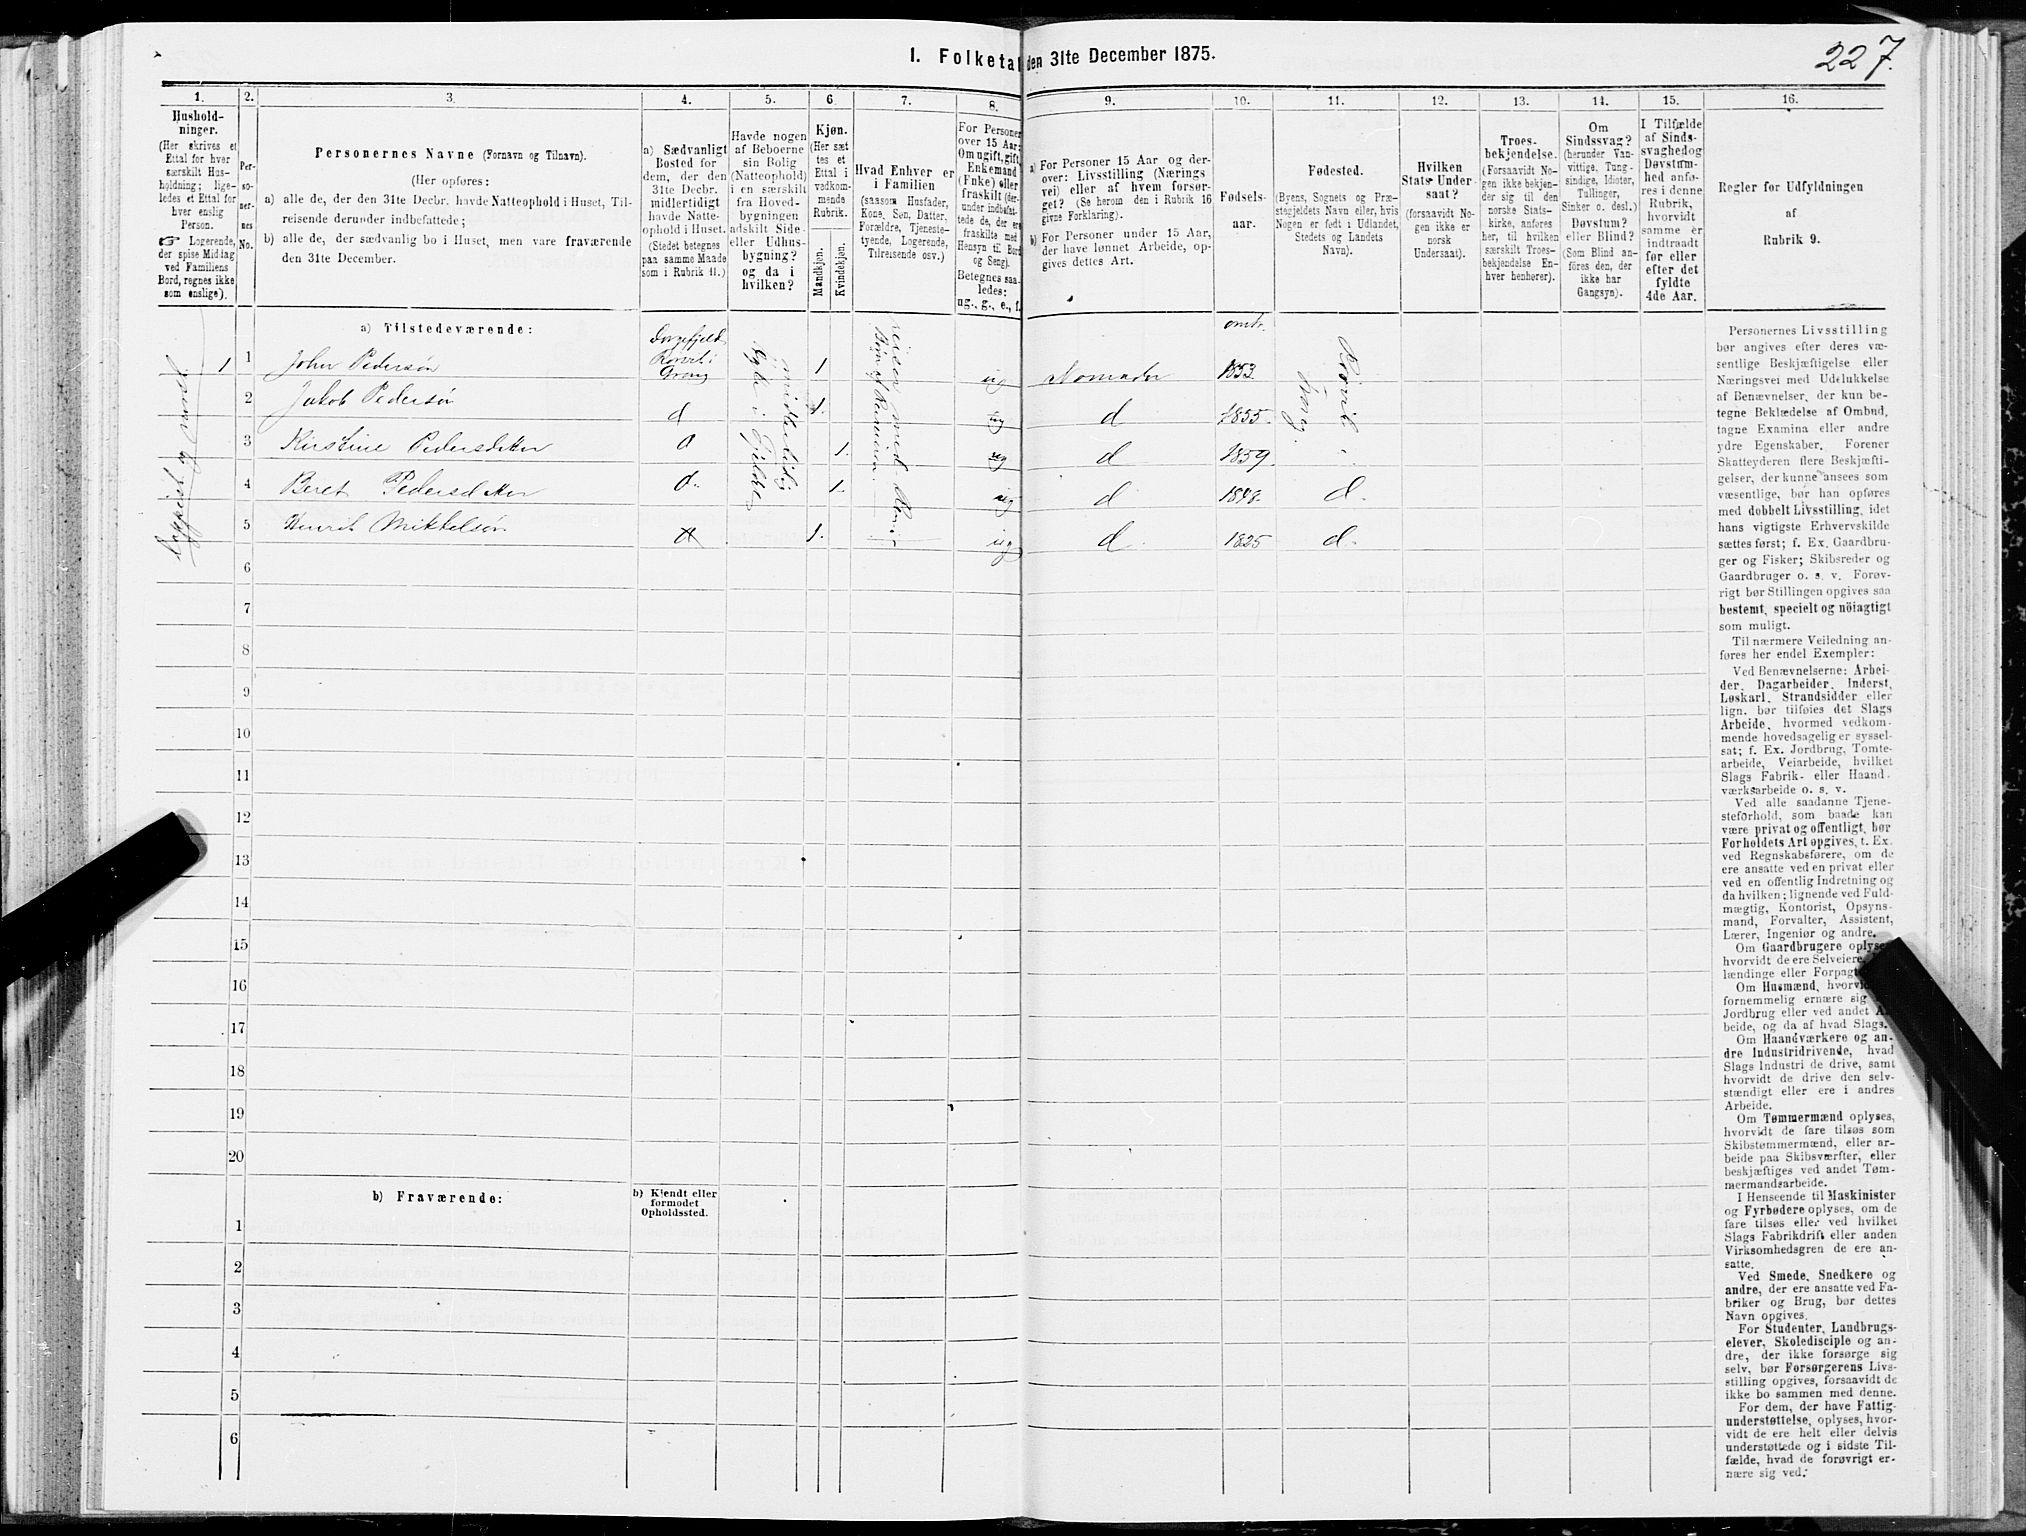 1. Folketal den 31te December 1875.
227.
1.
Hushold-
ninger.
(Her skrives et
Ettal for hver
særskilt Hus-
holdning; lige-
ledes et Ettal for
hver enslig
Person.
Logerende,
der spise Middag
ved Familiens
Bord, regnes ikke
som enslige).
2.
Per-
so-
ner-
nes
No.
3.
Personernes Navne (Fornavn og Tilnavn).
(Her opføres:
a) alle de, der den 31te Decbr. havde Natteophold i Huset, Til-
reisende derunder indbefattede;
b) alle de, der sædvanlig bo i Huset, men vare fraværende
den 31te December.
4.
a) Sædvanligt
Bosted for
dem, der den
31te Decbr.
midlertidigt
havde Natte-
ophold i Huset.
(Stedet betegnes
paa samme Maade
som i Rubrik 11.)
5.
Havde nogen
af Beboerne
sin Bolig
(Natteophold)
i en særskilt
fra Hoved-
bygningen
adskilt Side-
eller Udhus-
bygning?
og da i
hvilken?
6.
Kjøn.
(Her sæt
tes et
Ettal i
vedkom-
mende
Rubrik.
Mandkjøn.
Kvindekjøn.
7.
Hvad Enhver er
i Familien
(saasom Husfader,
Kone, Søn, Datter,
Forældre, Tjeneste-
tyende, Logerende,
Tilreisende osv.)
8.
For Personer
over 15 Aar:
Om ugift, gift,
Enkemand
(Enke) eller
fraskilt (der-
under indbefat-
tede de, der ere
fraskilte med
Hensyn til Bord
og Seng).
Betegnes saa-
ledes:
ug., g., e., f.
9.
a) For Personer 15 Aar og der-
over: Livsstilling (Nærings
vei) eller af hvem forsør-
get? (Se herom den i Rubrik 16
givne Forklaring).
b) For Personer under 15 Aar,
der have lønnet Arbeide, op-
gives dettes Art.
10.
Fødsels-
aar.
11.
Fødested.
(Byens, Sognets og Præ-
stegjeldets Navn eller, hvis
Nogen er født i Udlandet,
Stedets og Landets
Navn).
12.
Hvilken
Stats Under-
saat?
(forsaavidt No-
gen ikke er
norsk
Undersaat).
13.
Troes-
bekjendelse.
(Forsaavidt No-
gen ikke bekjen-
der sig til den
norske Stats-
kirke, anføres
her, til hvilken
særskilt Troes-
bekjendelse En-
hver henhører).
14.
Om
Sindssvag?
(herunder Van-
vittige, Tung-
sindige, Idioter,
Tullinger,
Sinker o. desl.)
Døvstum?
eller Blind?
(Som Blind an-
føres den, der
ikke har
Gangsyn).
15.
I Tilfælde
af Sinds-
svaghed og
Døvstum-
hed anfø-
res i denne
Rubrik,
hvorvidt
samme er
indtraadt
før eller
efter det
fyldte
4de Aar.
16.
Regler for Udfyldningen
af
Rubrik 9.
a) Tilstedeværende:
1 1 John Pedersøn Grong 1 ug Nomader omtr. 1853.
2 Jakob Pedersøn d 1. ug d 1855.
3 Kirstine Pedersdatter d 1. ug d 1859.
4 Beret Pedersdatter d. 1. ug d d.
5 Henrik Mikkelsøn d 1. ug d. 1825 d.
6
7
8
9
10
11
12
13
14
15
16
17
18
19
20
b) Fraværende:
b) Kjendt eller
formodet
Opholdssted.
1
2
3
4
5
6
Personernes Livsstilling
bør angives efter deres væ-
sentlige Beskjæftigelse eller
Næringsvei med Udelukkelse
af Benævnelser, der kun be-
tegne Beklædelse af Ombud,
tagne Examina eller andre
ydre Egenskaber. Forener
Skatteyderen flere Beskjæfti-
gelser, der kunne ansees som
væsentlige, bør han opføres
med dobbelt Livsstilling, idet
hans vigtigste Erhvervskilde
sættes først; f. Ex. Gaardbru-
ger og Fisker; Skibsreder og
Gaardbruger o. s. v. Forøv-
rigt bør Stillingen opgives saa
bestemt, specielt og nöiagtigt
som muligt.
Til nærmere Veiledning an-
føres her endel Exempler:
Ved Benævnelserne: Arbei-
der, Dagarbeider, Inderst,
Løskarl, Strandsidder eller
lign. bør tilføies det Slags
Arbeide, hvormed vedkom-
mende hovedsagelig er syssel-
sat; f. Ex. Jordbrug, Tomte-
arbeide, Veiarbeide, hvilket
Slags Fabrik- eller Haand-
værksarbeide o. s. v.
Ved alle saadanne Tjene-
steforhold, som baade kan
være privat og offentligt, bør
Forholdets Art opgives, t. Ex.
ved Regnskabsførere, om de
ere ansatte ved en privat eller
ved en offentlig Indretning og
da hvilken; lignende ved Fuld-
mægtig, Kontorist, Opsyns-
mand, Forvalter, Assistent,
Lærer, Ingeniør og andre.
Om Gaardbrugere oplyses
hvorvidt de ere Selveiere,
lændinge eller
Om Husmænd,
fornemmelig ernære sig
Jordbrug eller ved andet
beide, og da af hvad Slags.
Om Haandværkere og an-
dre Industridrivende, hvad
Slags Industri de drive, samt
hvorvidt de drive den selv-
stændigt eller ere i andres
Arbeide.
Om Tømmermænd oplyses,
hvorvidt de fare tilsøs som
Skibstømmermænd, eller ar-
beide paa Skibsværfter, eller
beskjæftiges ved andet Tøm-
mermandsarbeide.
I Henseende til Maskinister
og Fyrbødere oplyses, om de
fare tilsøs eller ved hvilket
Slags Fabrikdrift eller anden
Virksomhedsgren de ere an-
satte.
Ved Smede, Snedkere og
andre, der ere ansatte ved Fa-
briker og Brug, bør dettes
Navn opgives.
For Studenter, Landbrugs-
elever, Skoledisciple og an-
dre, der ikke forsørge sig
selv, bør Forsørgerens Livs-
stilling opgives, forsaavidt de
ikke bo sammen med denne.
For dem, der have Fattig-
understøttelse, oplyses, hvor-
vidt de ere helt eller delvis
understøttede og i sidste Til-
fælde, hvad de forøvrigt er-
nære sig ved.